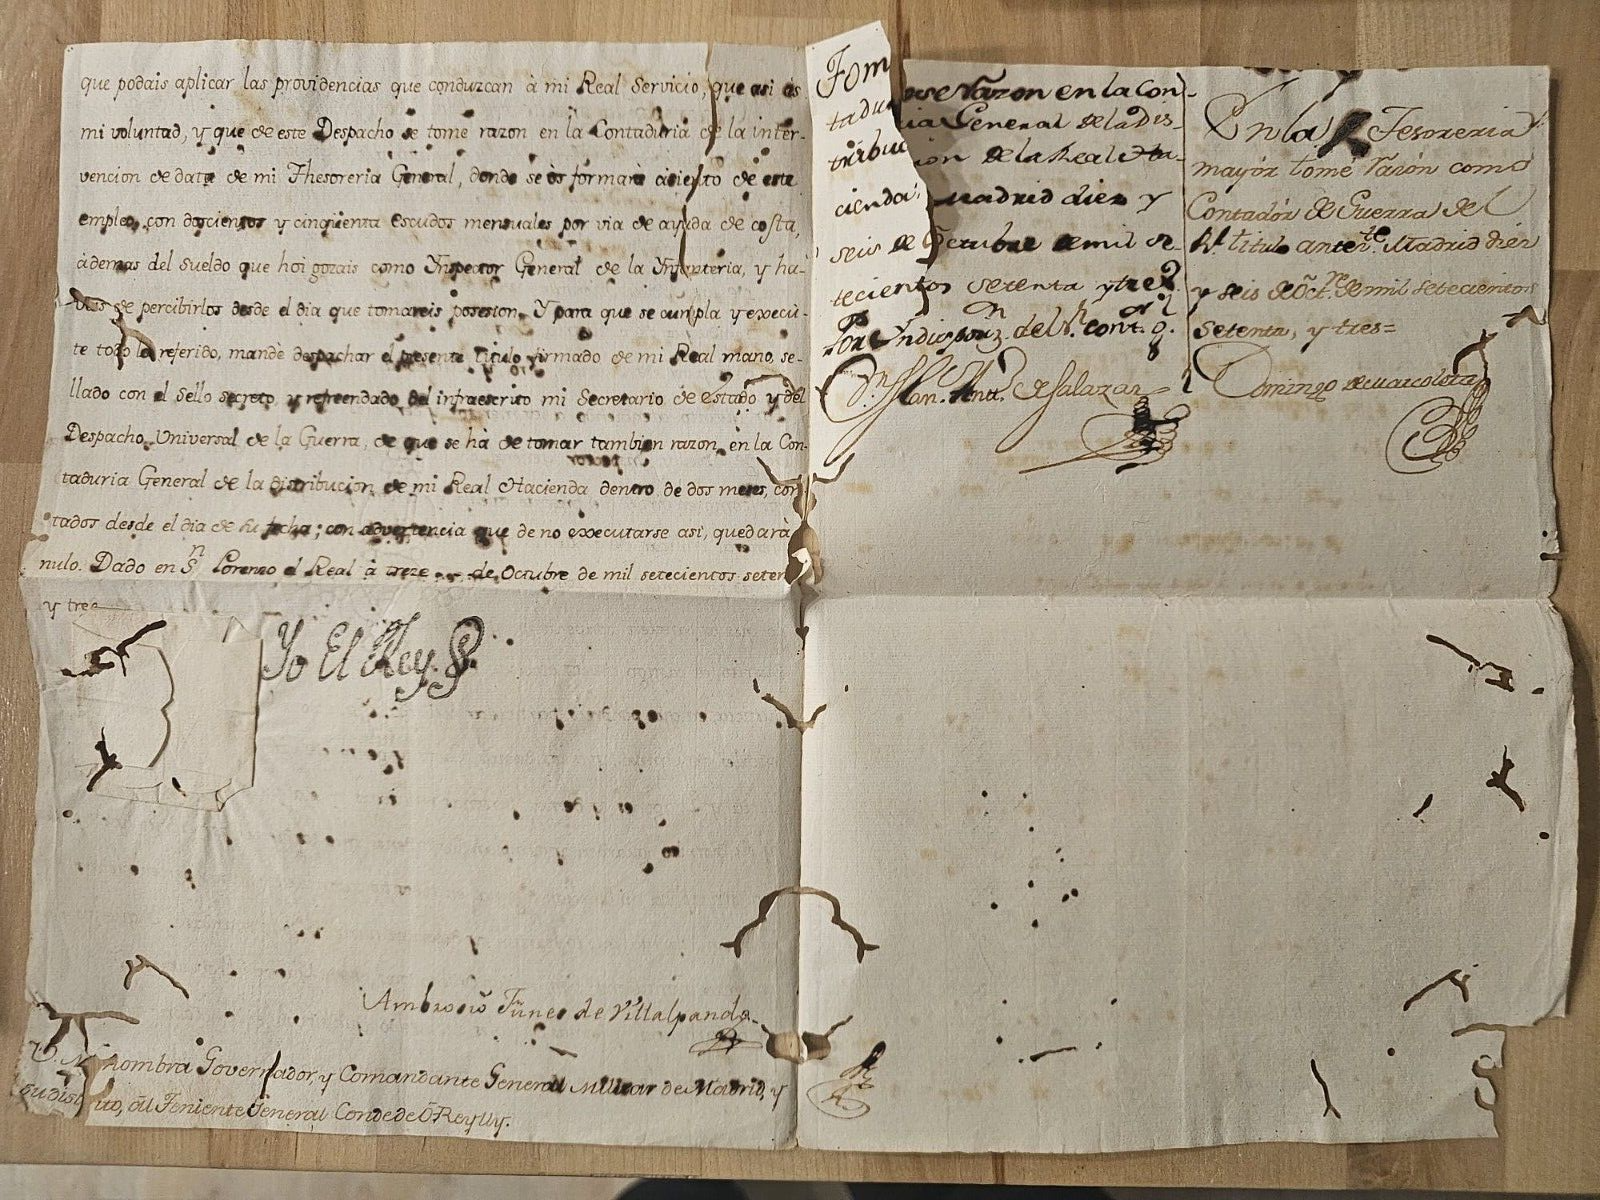 que podais aplicar las providencias que conduzcan à mi Real Servicio, que asi es
mi voluntad, y que de este Despacho se tome razon en la Contaduria de la inter-
vencion de data de mi Thesoreria General, donde se òs formarà asiento de este
empleo, con doscientos y cinqüenta escudos mensuales por via de ayuda de costa,
àdemas del sueldo que hoi gozais como Ynspector General de la Ynfanteria, y ha-
veis de percibirlos desde el dia que tomareis posesion. Y para que se cumpla y execu-
te todo lo referido, mandè despachar el presente titulo firmado de mi Real mano, se-
llado con el sello secreto y refrendado del infraescrito mi Secretario de Estado y del
Despacho Universal de la Guerra, de que se hà de tomar tambien razon en la Con-
taduria General de la distribucion de mi Real Hacienda dentro de dos meses, con
tados desde el dia de su fecha; con advertencia que de no executarse asi, quedarà
nulo. Dado en Sn Lorenzo el Real à treze de Octubre de mil setecientos seten
y tres
Yo El Rey
Ambrosio Funes de Villalpando
V. M. nombra Governador, y Comandante General Militar de Madrid, y
su dist ito, àl Teniente General Conde de O Reylly.
Tomose Razon en la Con-
taduria General de la Dis-
tribucion de la Real Ha-
cienda; Madrid diez y
seis de Octubre de mil se-
tecientos setenta y tres
Por Yndispon.n del S.r cont.or g.l
D.n Fran. Ant. de Salazar
En la Tesoreria
mayór tomé razón como
Contadór de Guerra del
R.l titulo antente. Madrid diéz
y seis de Oct.re de mil setecientos
setenta, y tres=
Domingo de Marcoleta